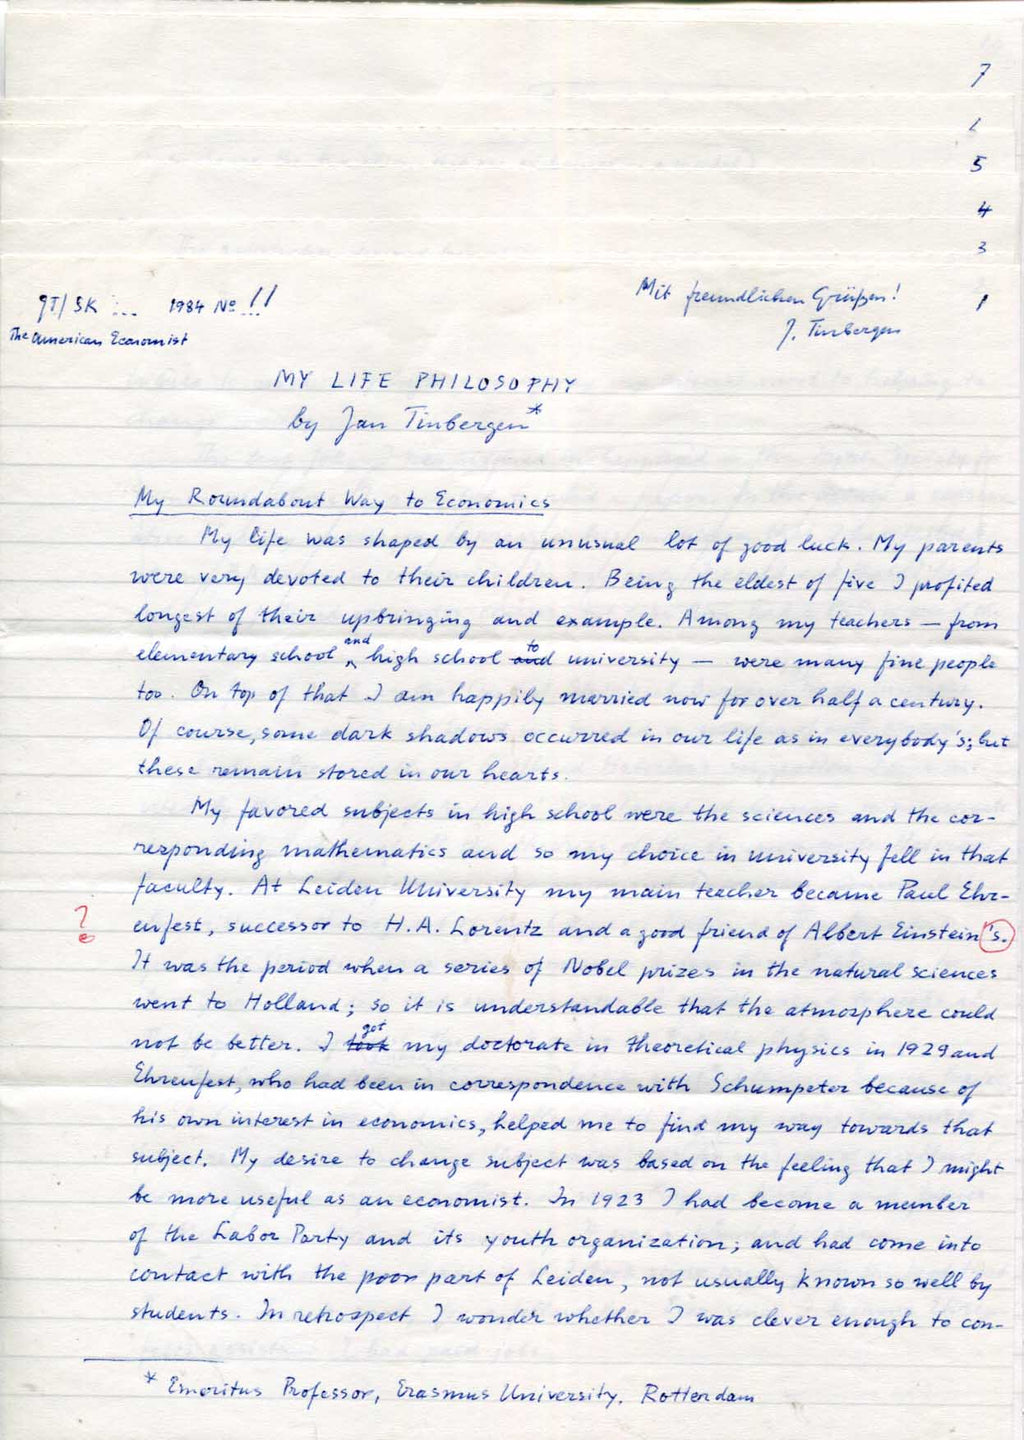 7
5
4
3
1
JT/SK ... 1984 No 11
The American Economist
Mit freundlichen Grüßen!
J. Tinbergen
MY LIFE PHILOSOPHY
by Jan Tinbergen*
My Roundabout Way to Economics
My life was shaped by an unusual lot of good luck. My parents
were very devoted to their children. Being the eldest of five I profited
longest of their upbringing and example. Among my teachers — from
elementary school and high school to university — were many fine people
too. On top of that I am happily married now for over half a century.
Of course, some dark shadows occurred in our life as in everybody's; but
these remain stored in our hearts.
My favored subjects in high school were the sciences and the cor-
responding mathematics and so my choice in university fell in that
faculty. At Leiden University my main teacher became Paul Ehr-
? enfest, successor to H.A. Lorentz and a good friend of Albert Einstein's.
It was the period when a series of Nobel prizes in the natural sciences
went to Holland; so it is understandable that the atmosphere could
not be better. I took got my doctorate in theoretical physics in 1929 and
Ehrenfest, who had been in correspondence with Schumpeter because of
his own interest in economics, helped me to find my way towards that
subject. My desire to change subject was based on the feeling that I might
be more useful as an economist. In 1923 I had become a member
of the Labor Party and its youth organization; and had come into
contact with the poor part of Leiden, not usually known so well by
students. In retrospect I wonder whether I was clever enough to con-
* Emeritus Professor, Erasmus University, Rotterdam